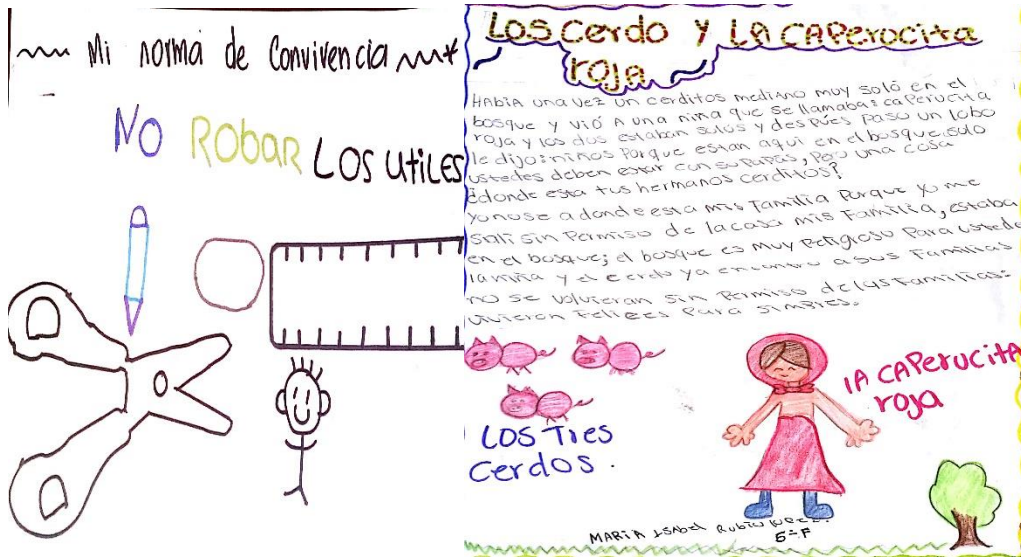 Mi norma de Convivencia
NO ROBAR LOS UtiLES
LOS Cerdo Y LA CAPerocitra
roja
HAbiA una vez un cerditos mediano muy soló en el
bosque y vió A una niña que se llamaba: caperucita
roja y los dos estaban solos y despues paso un lobo
le dijo: niños Porque estan aqui en el bosque solo
ustedes deben estar con su papas, Pero una cosa
¿donde esta tus hermanos cerditos?
yo nose a donde esta mis familia Porque yo me
Sali sin Permiso de la casa mis Familia, estaba
en el bosque; el bosque es muy Peligroso Para ustede
la niña y el cerdo ya encontro a sus Familias
no se volvieran sin Permiso de las Familias:
vivieron Felices Para simpres.
LOS Tres
Cerdos.
lA CAPerucitA
roja
MARIA ISAbel Rubio
5-F